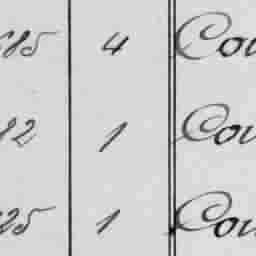 4 Cou
12 1 Cou
25 1 Cou